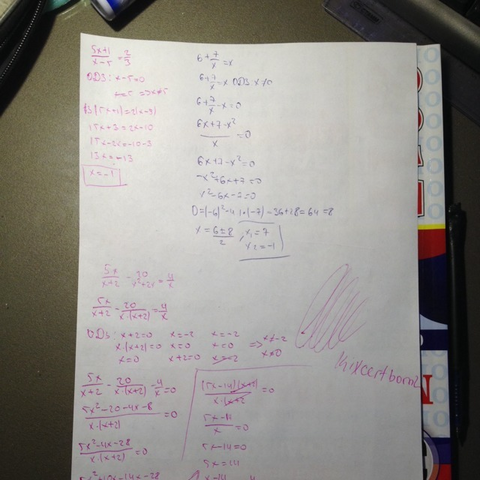 5x+1/x-5 = 2/3
ODS: x-5=0
x=5 => x≠5
3(5x+1)=2(x-5)
15x+3=2x-10
15x-2x=-10-3
13x=-13
x=-1
6+7/x=x
6+7/x=x ODS x≠0
6+7/x-x=0
6x+7-x²/x=0
6x+7-x²=0
-x²+6x+7=0
x²-6x-7=0
D=(-6)²-4·1·(-7)=36+28=64=8
x=6±8/2 x₁=7
x₂=-1
5x/x+2 - 20/x²+2x = 4/x
5x/x+2 - 20/x·(x+2) = 4/x
ODS: x+2=0 x=-2 x=-2
x·(x+2)=0 x=0 x=0 => x≠-2
x=0 x+2=0 x=-2 x≠0
5x/x+2 - 20/x·(x+2) - 4/x=0
5x²-20-4x-8/x·(x+2) =0
5x²-4x-28/x·(x+2) =0
(5x-14)(x+2)/x·(x+2) =0
5x-14/x =0
5x-14=0
5x=14